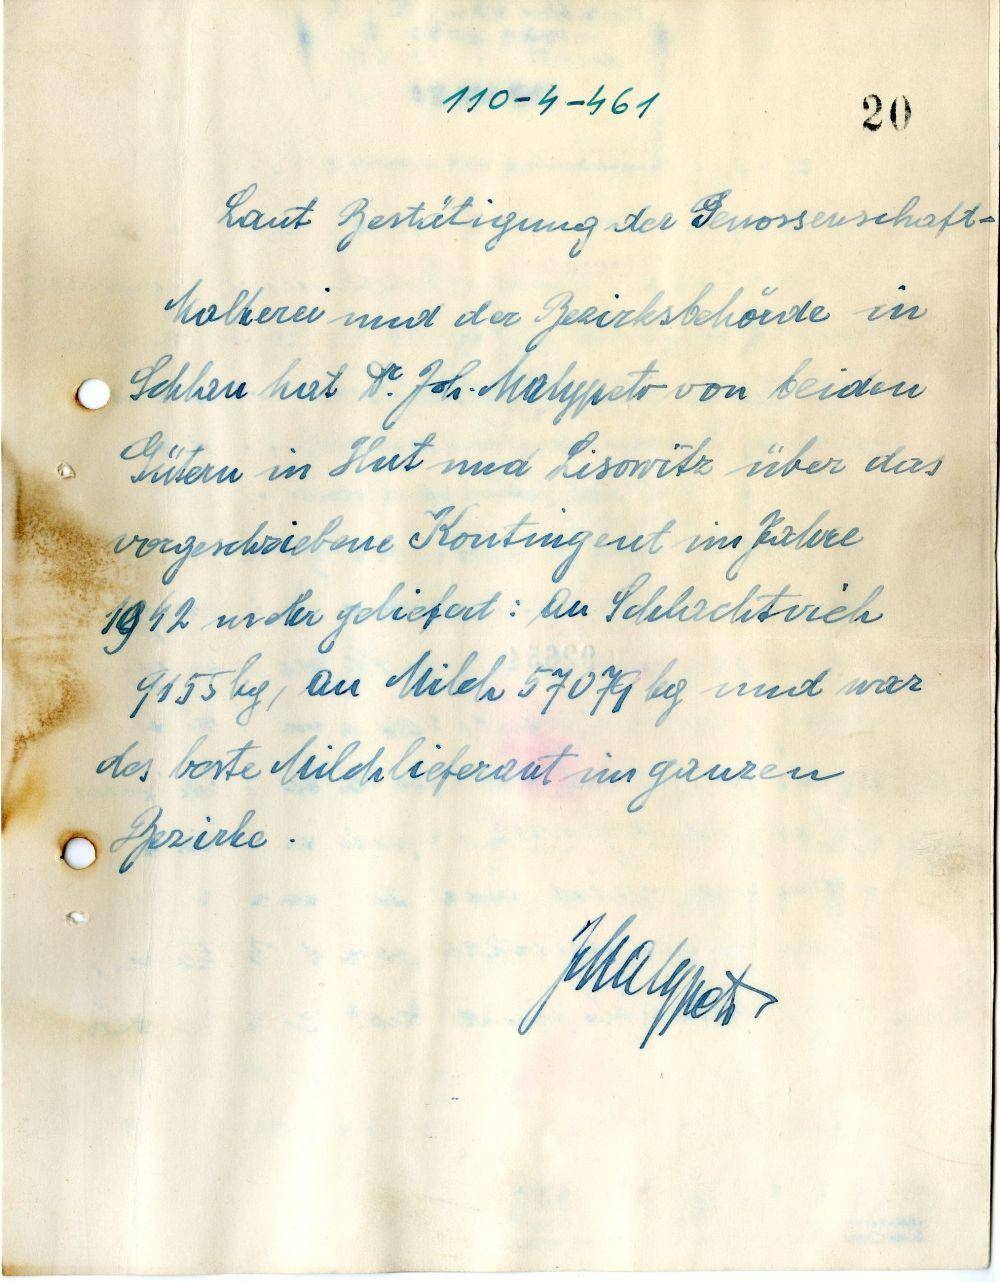 110-4-461
20
Laut Bestätigung der Genossenschaft-
Molkerei und der Bezirksbehörde in
Schlan hat Dr. Joh. Malypetr von beiden
Gütern in Hut und Lisowitz über das
vorgeschriebene Kontingent im Jahre
1942 mehr geliefert: an Schlachtvieh
9155 kg, an Milch 57079 kg und war
der beste Milchlieferant im ganzen
Bezirke.
JMalypetr